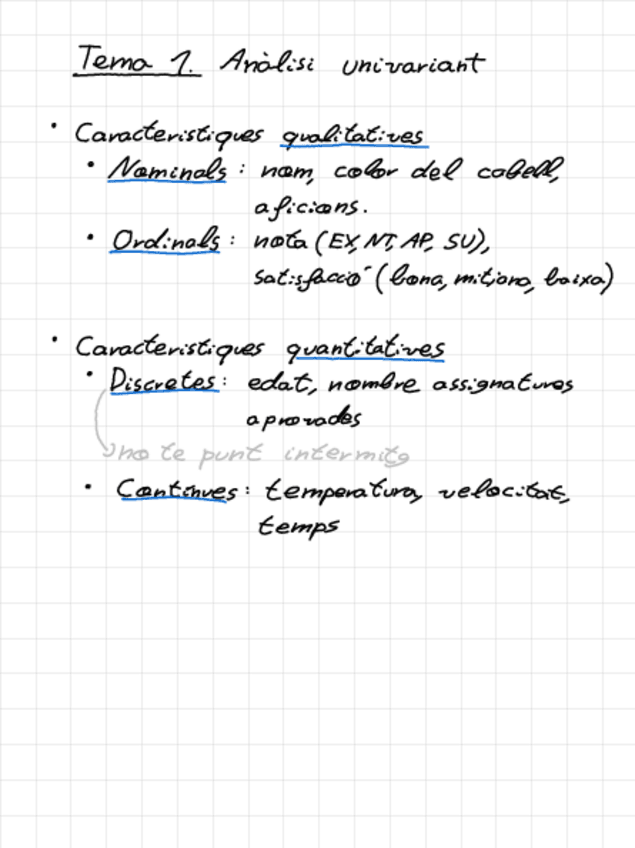 Tema 1. Anàlisi univariant
• Característiques qualitatives
• Nominals: nom, color del cabell,
aficions.
• Ordinals: nota (EX, NT, AP, SU),
satisfacció (bona, mitjana, baixa)
• Característiques quantitatives
• Discretes: edat, nombre assignatures
aprovades
no te punt intermitg
• Contínues: temperatura, velocitat,
temps